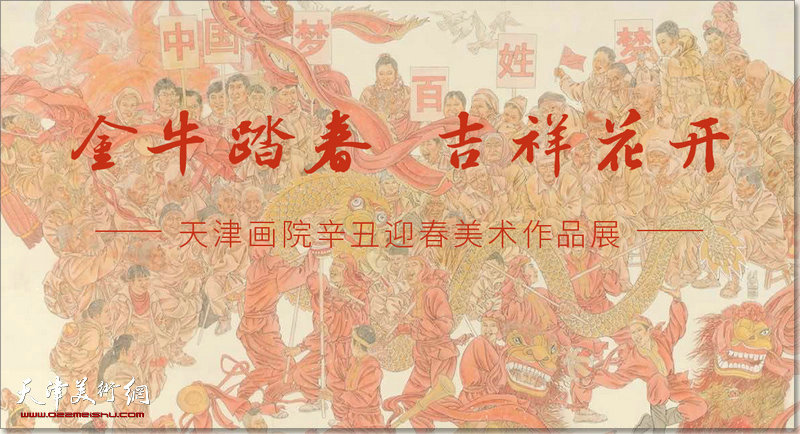 中国梦 百姓梦
金牛踏春 吉祥花开
天津画院辛丑迎春美术作品展
天津美術網
www.022meishu.com